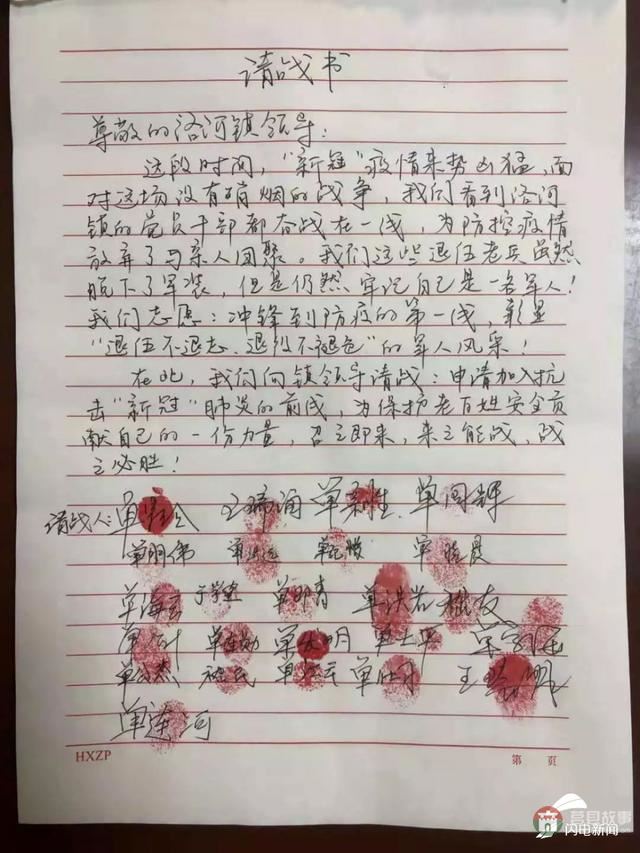 请战书
尊敬的洛河镇领导：
这段时间，“新冠”疫情来势凶猛，面
对这场没有硝烟的战争，我们看到洛河
镇的党员干部都奋战在一线，为防控疫情
放弃了与亲人团聚。我们这些退伍老兵虽然
脱下了军装，但是仍然牢记自己是一名军人！
我们志愿：冲锋到防疫的第一线，彰显
“退伍不退志、退役不褪色”的军人风采！
在此，我们向镇领导请战：申请加入抗
击“新冠”肺炎的前线，为保护老百姓安全贡
献自己的一份力量，召之即来，来之能战，战
之必胜！
请战人：单 王瑞涌 单 单国辉
单明伟 单 单 单晓晨
单海玄 于学建 单即青 单洪岩
单 单 单友明 单士平
单 单 单 王 明
单连河
HXZP 第 页
莒县故事
闪电新闻